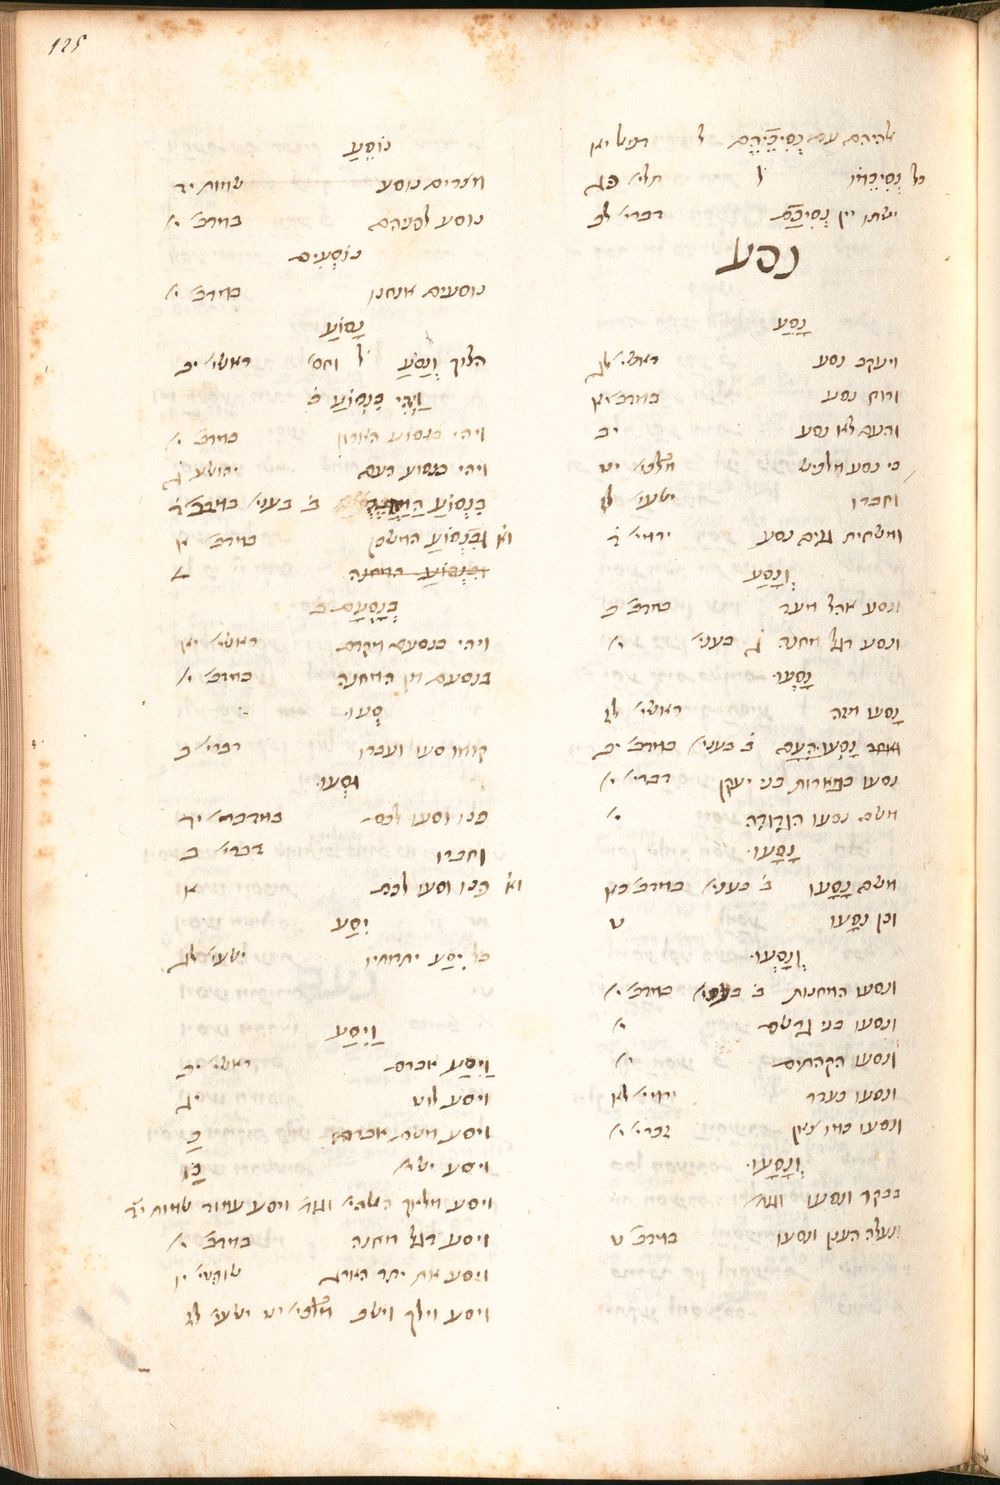 125
אלהיהם עם נְסִיכֵיהֶם ל דניאל יא
כל נְסִיכֵמוֹ ל תלי׳ פג
ישתו יין נְסִיכָם דברי׳ לב
נסע
נָסַע
ויעקב נסע ראשי׳ לג
ורוח נסע במדב׳ יא
והעם לא נסע יב
כי נסע מלכיש מלכי׳ יט
וחברו ישעי׳ לז
ומשחית גוים נסע ירמי׳ ד
וְנָסַע
ונסע אהל מועד במדב׳ ב
ונסע דגל מחנה ג בעני׳ י׳
נָסְעוּ
נָסעו מזה ראשי׳ לז
ואחר נָסְעוּ הָעָם ב׳ בעני׳ במדב׳ יב
נסעו מבארות בני יעקן דברי׳ י׳
משם נסעו הגֻדְגֹדָה י׳
נָסָעוּ
משם נָסָעו ב׳ בעני׳ במדב׳ כא
וכן נסָעו ט
וְנָסְעוּ
ונסעו המחנות ב׳ בעני׳ במדב׳ י׳
ונסעו בני גרשם י׳
ונסעו הקהתים י׳
ונסעו בעדר ירמי׳ לא
ונסעו כמו צאן זכרי׳ י׳
וְנָסָעוּ
בבקר ונסעו וגו׳
ונעלה הענן ונסעו במדב׳ ט
נוֹסֵעַ
מצרים נוסע שמות יד
נוסע לפניהם במדב׳ י׳
נוֹסְעִים
נוסעים אנחנו במדב׳ י׳
נָסוֹעַ
הלוך וְנָסֹעַ ל וחס׳ ראשי׳ יב
וַיְהִי בִּנְסוֹעַ ב׳
ויהי בנסוע הארון במדב׳ י׳
ויהי בנסוע העם יהושע ג
בִּנְסוֹעַ ב׳ בעני׳ במדב׳ ד
וא׳ וּבִנְסוֹעַ המשכן במדב׳ א
ובִנְסוֹעַ המחנה ד
בְּנָסְעָם ב׳
ויהי בנסעם מקדם ראשי׳ יא
בנסעם מן המחנה במדב׳ י׳
סְעוּ
קומו סעו ועברו דברי׳ ב
וּסְעוּ
פנו וסעו לכם במדבר יד
וחברו דברי׳ ב
וא׳ פנו וסעו לכם א
יִסַּע
כל יִסַּע יתדתיו ישעי׳ לג
וַיִּסַּע
וַיִּסַּע אברם ראשי׳ יב
ויסע לוט יג
ויסע משם אברהם כ
ויסע ישר׳ מו
ויסע מלאך האלהי׳ וגו׳ ויסע עמוד שמות יד
ויסע דגל מחנה במדב׳ י׳
ויסע את יתד הארג שופטי׳ יו
ויסע וילך וישב מלכי׳ יט ישעי׳ לז